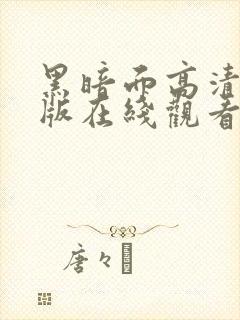 黑暗而高清
版在綫觀看
唐々